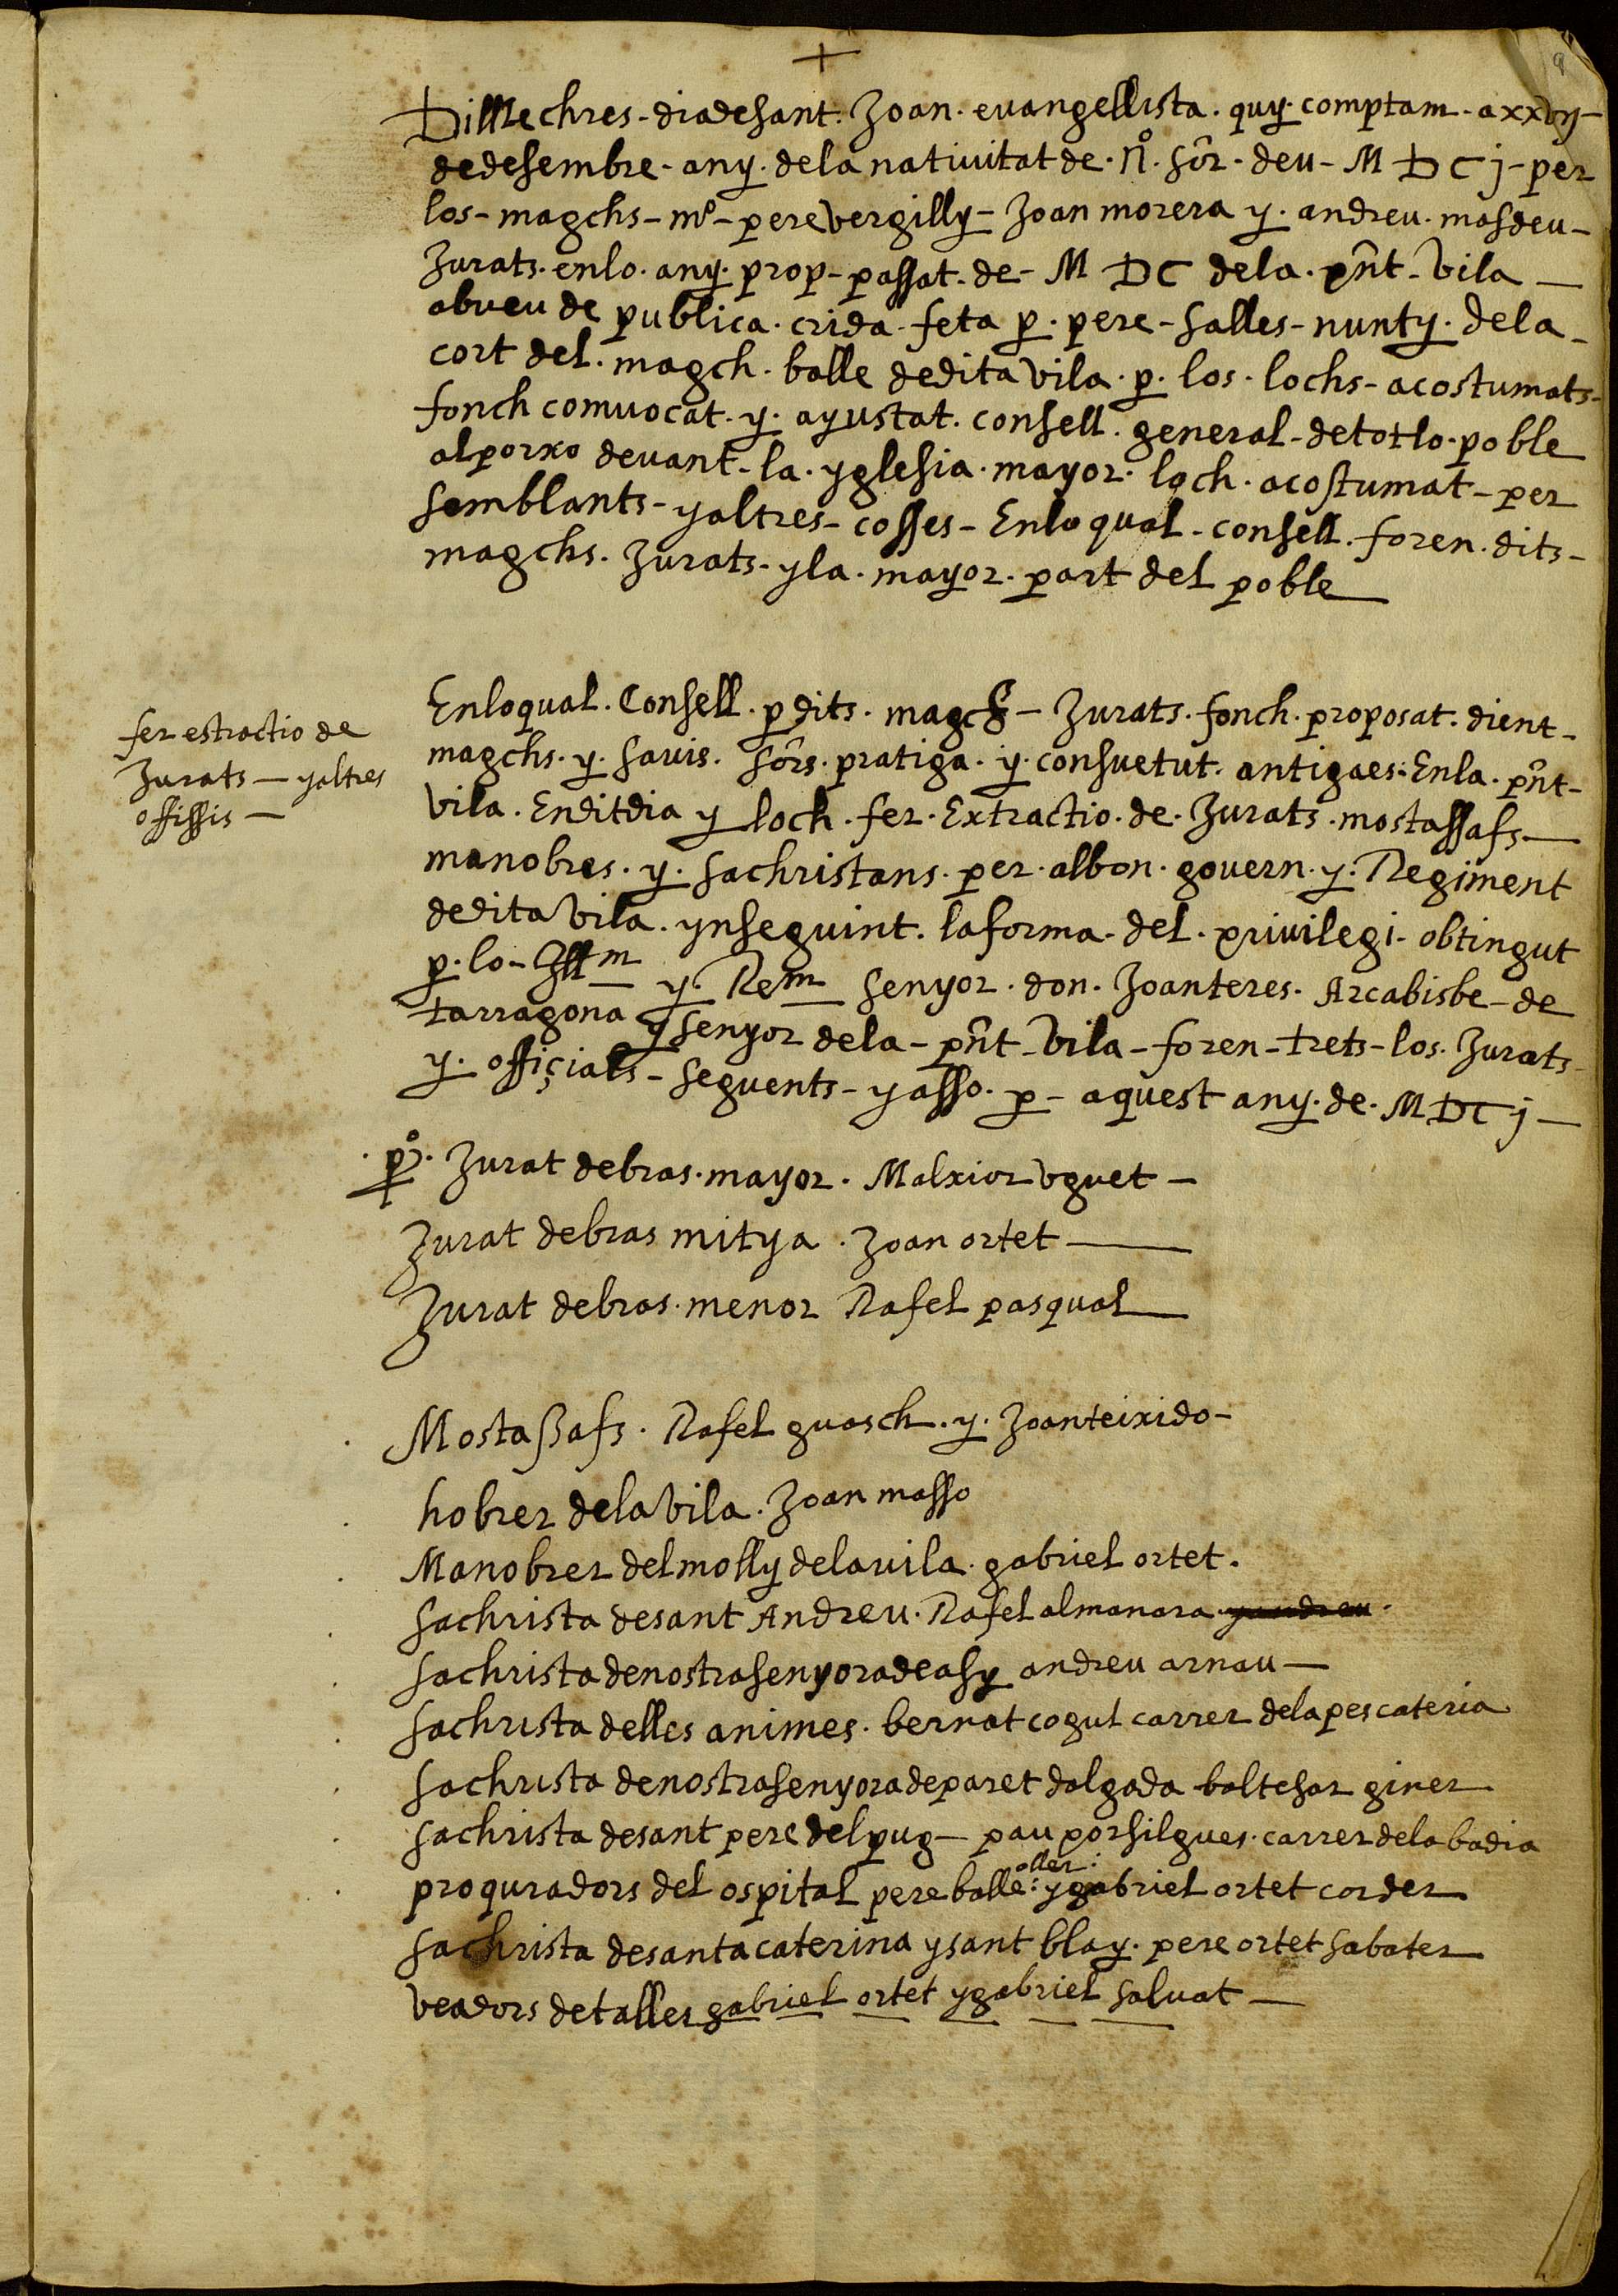 +
9
Dimechres - dia de sant. Joan. evangellista. quy. comptam - a xxvij -
de desembre - any. de la nativitat de. nº. sôr - deu - M DC j - per
los - magchs - mº - pere vergilly - Joan morera y. andreu. masdeu -
Jurats. en lo. any. prop - passat. de - M DC de la. pñt - vila —
ab veu de publica. crida - feta p. pere - salles - nunty. de la -
cort del. magch. balle de dita vila. p. los. lochs - acostumats -
fonch comvocat. y. ayustat. consell. general - de tot lo. poble
al porxo devant - la. yglesia. mayor. loch. acostumat - per
semblants - y altres - cosses - En lo qual - consell. foren. dits -
magchs. Jurats - y la. mayor. part del poble —
fer estractio de
Jurats — y altres
offissis —
En lo qual. Consell. p dits. magchs - Jurats. fonch. proposat. dient -
magchs. y. savis. sôrs. pratiga. y. consuetut. antiga es. En la. pñt -
vila. En dit dia y loch. fer. Extractio. de. Jurats. mostassafs —
manobres. y. sachristans. per. al bon. govern. y. Regiment
de dita vila. ynseguint. la forma - del. privilegi - obtingut
p. lo - Illm y. Rem senyor. don. Joan teres. Arcabisbe - de
tarragona y senyor de la - pñt - vila - foren - trets - los. Jurats -
y. offiçials - seguents - y asso. p - aquest any. de. M DC j —
. pº. Jurat de bras. mayor. Malxior uguet —
Jurat de bras mitya. Joan ortet —
Jurat de bras. menor Rafel pasqual —
. Mostaßafs. Rafel guasch. y. Joan teixido -
. hobrer de la vila. Joan masso
. Manobrer del molly de la vila. gabriel ortet.
. sachrista de sant Andreu. Rafel almanara. y andreu.
. sachrista de nostra senyora de asy andreu arnau —
. sachrista de lles animes. bernat cogul carrer de la pescateria
. sachrista de nostra senyora de paret dalgada baltesar giner
. sachrista de sant pere del pug - pau porsilgues. carrer de la badia
. proquradors del ospital pere balle: oller: y gabriel ortet corder
sachrista de santa caterina y sant blay. pere ortet sabater
veadors de talles gabriel ortet y gabriel salvat —